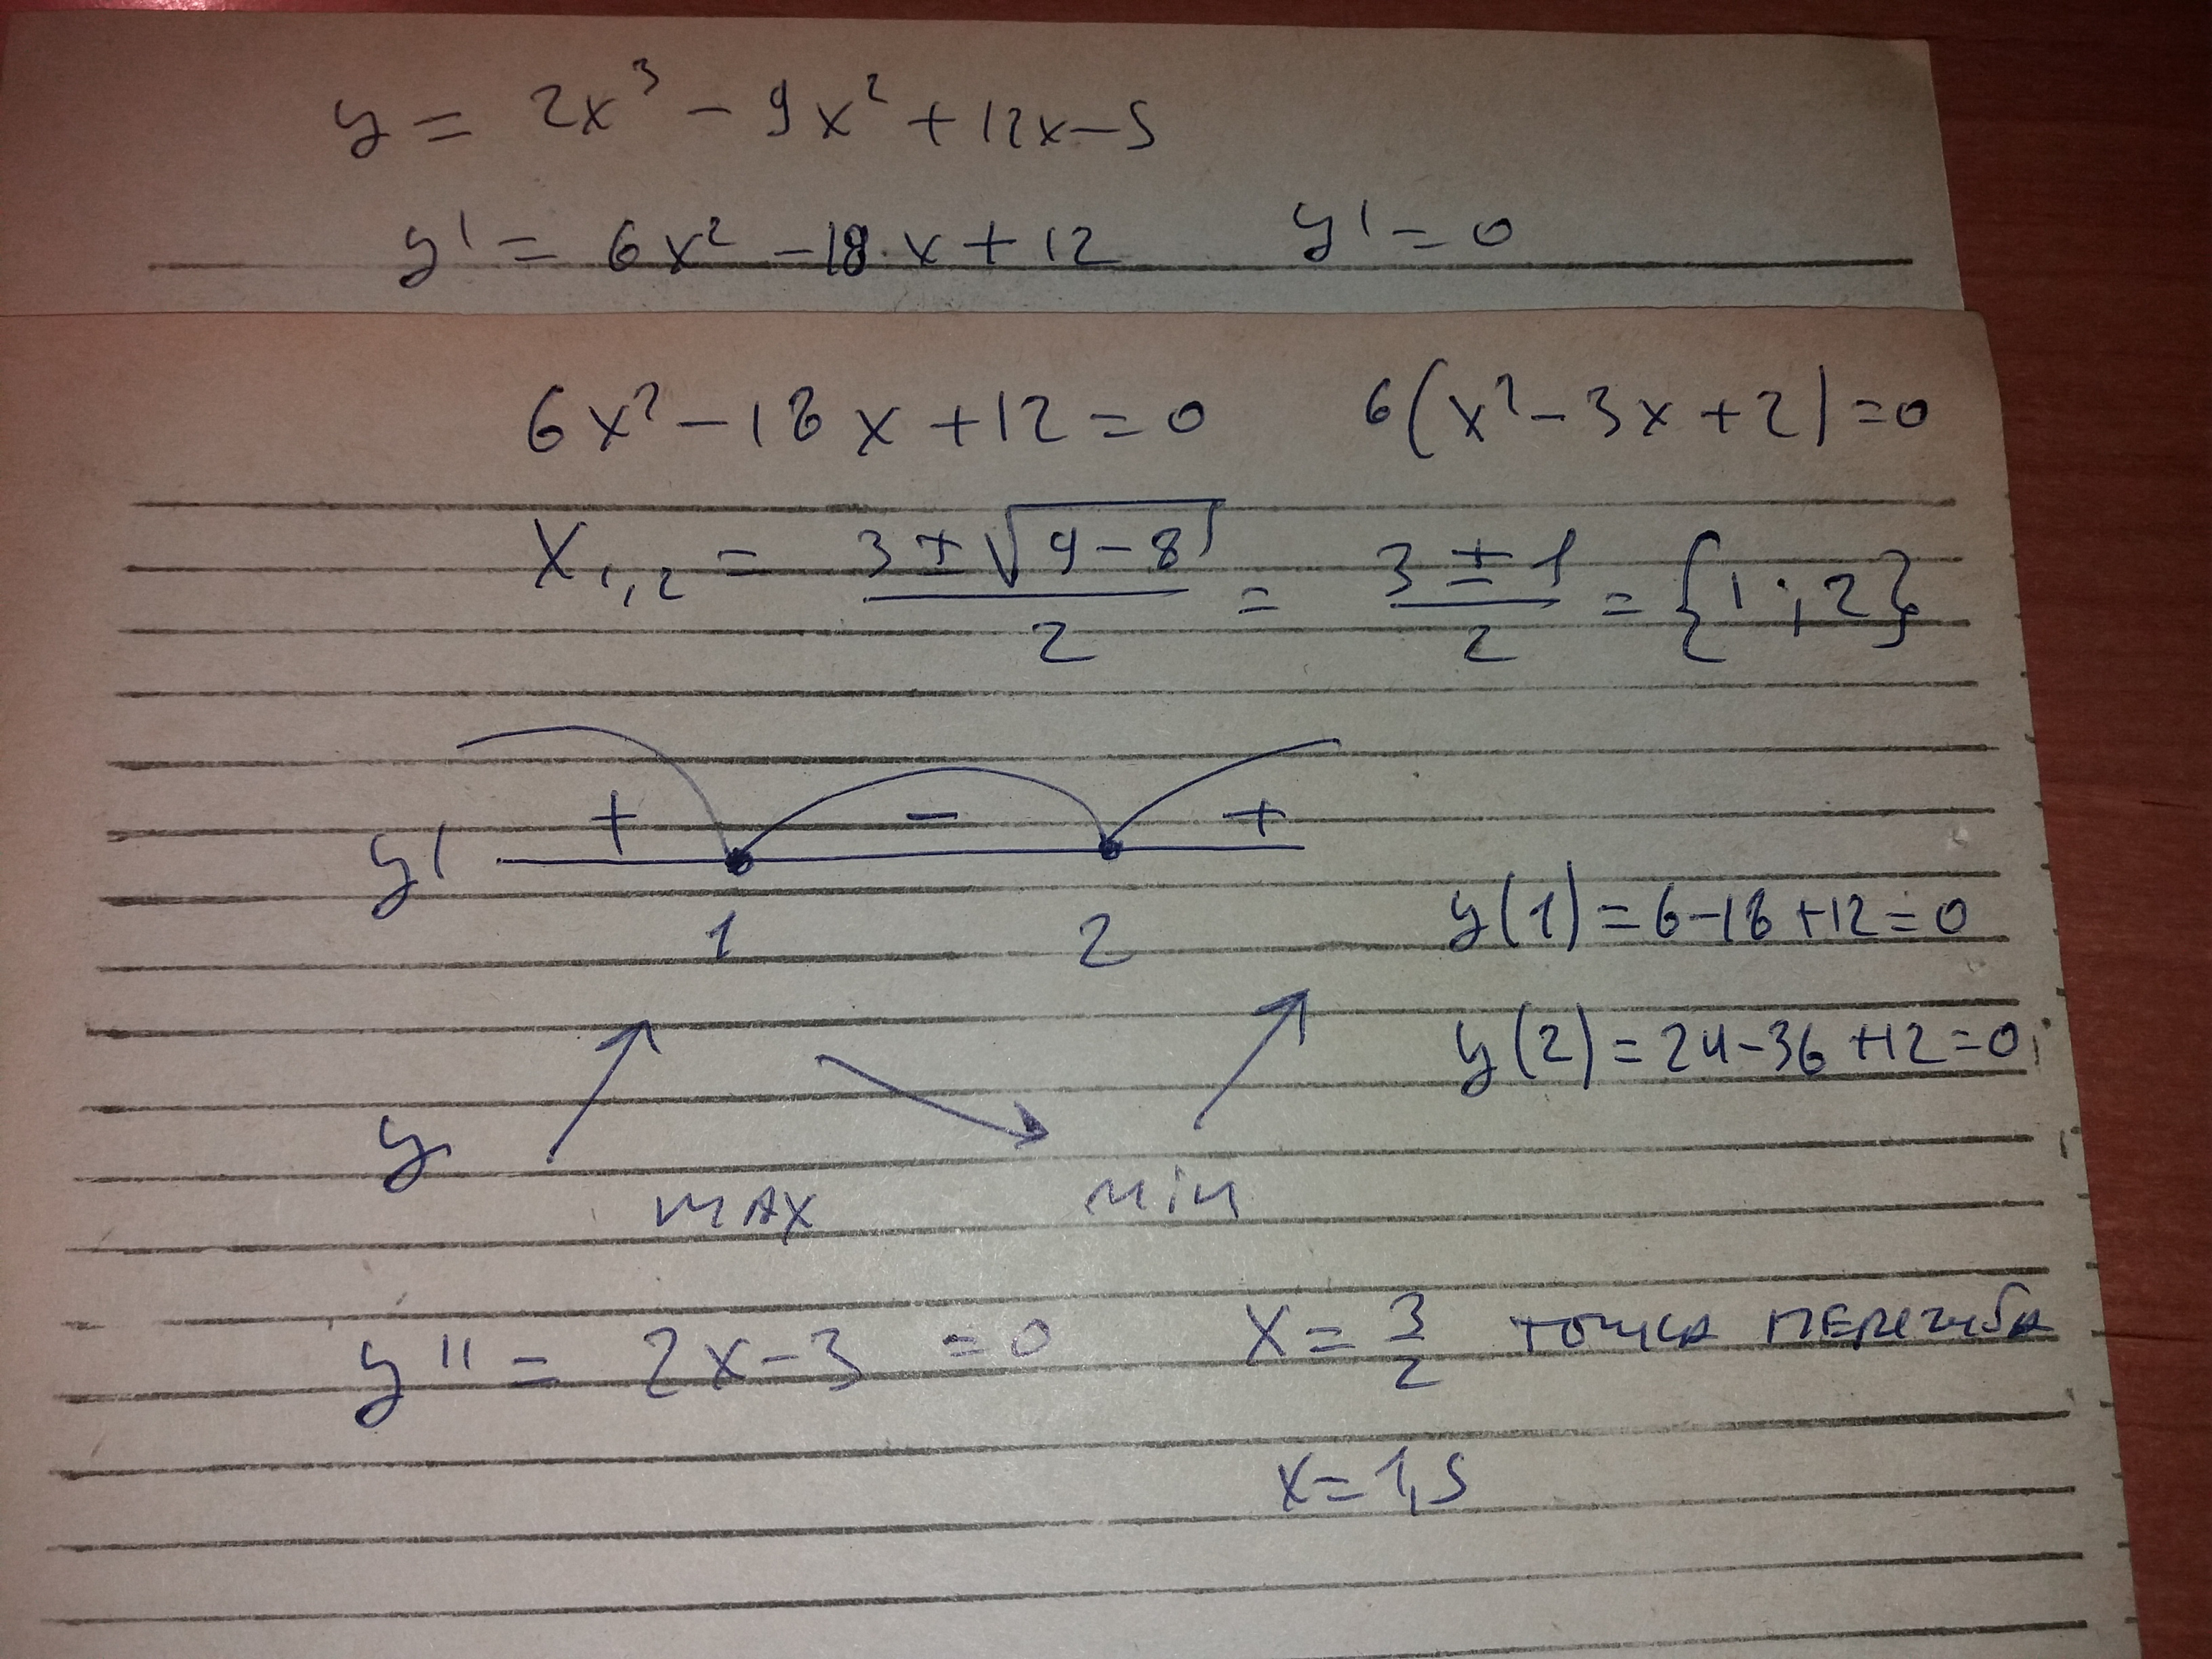 y = 2x³ - 9x² + 12x - 5
y' = 6x² - 18·x + 12 y' = 0
6x² - 18x + 12 = 0 6(x² - 3x + 2) = 0
x₁,₂ = (3 ± √(9 - 8))/2 = (3 ± 1)/2 = {1; 2}
y' + - +
1 2
y(1) = 6 - 18 + 12 = 0
y(2) = 24 - 36 + 12 = 0;
y
max min
y'' = 2x - 3 = 0 x = 3/2 точка перегиба
x = 1,5